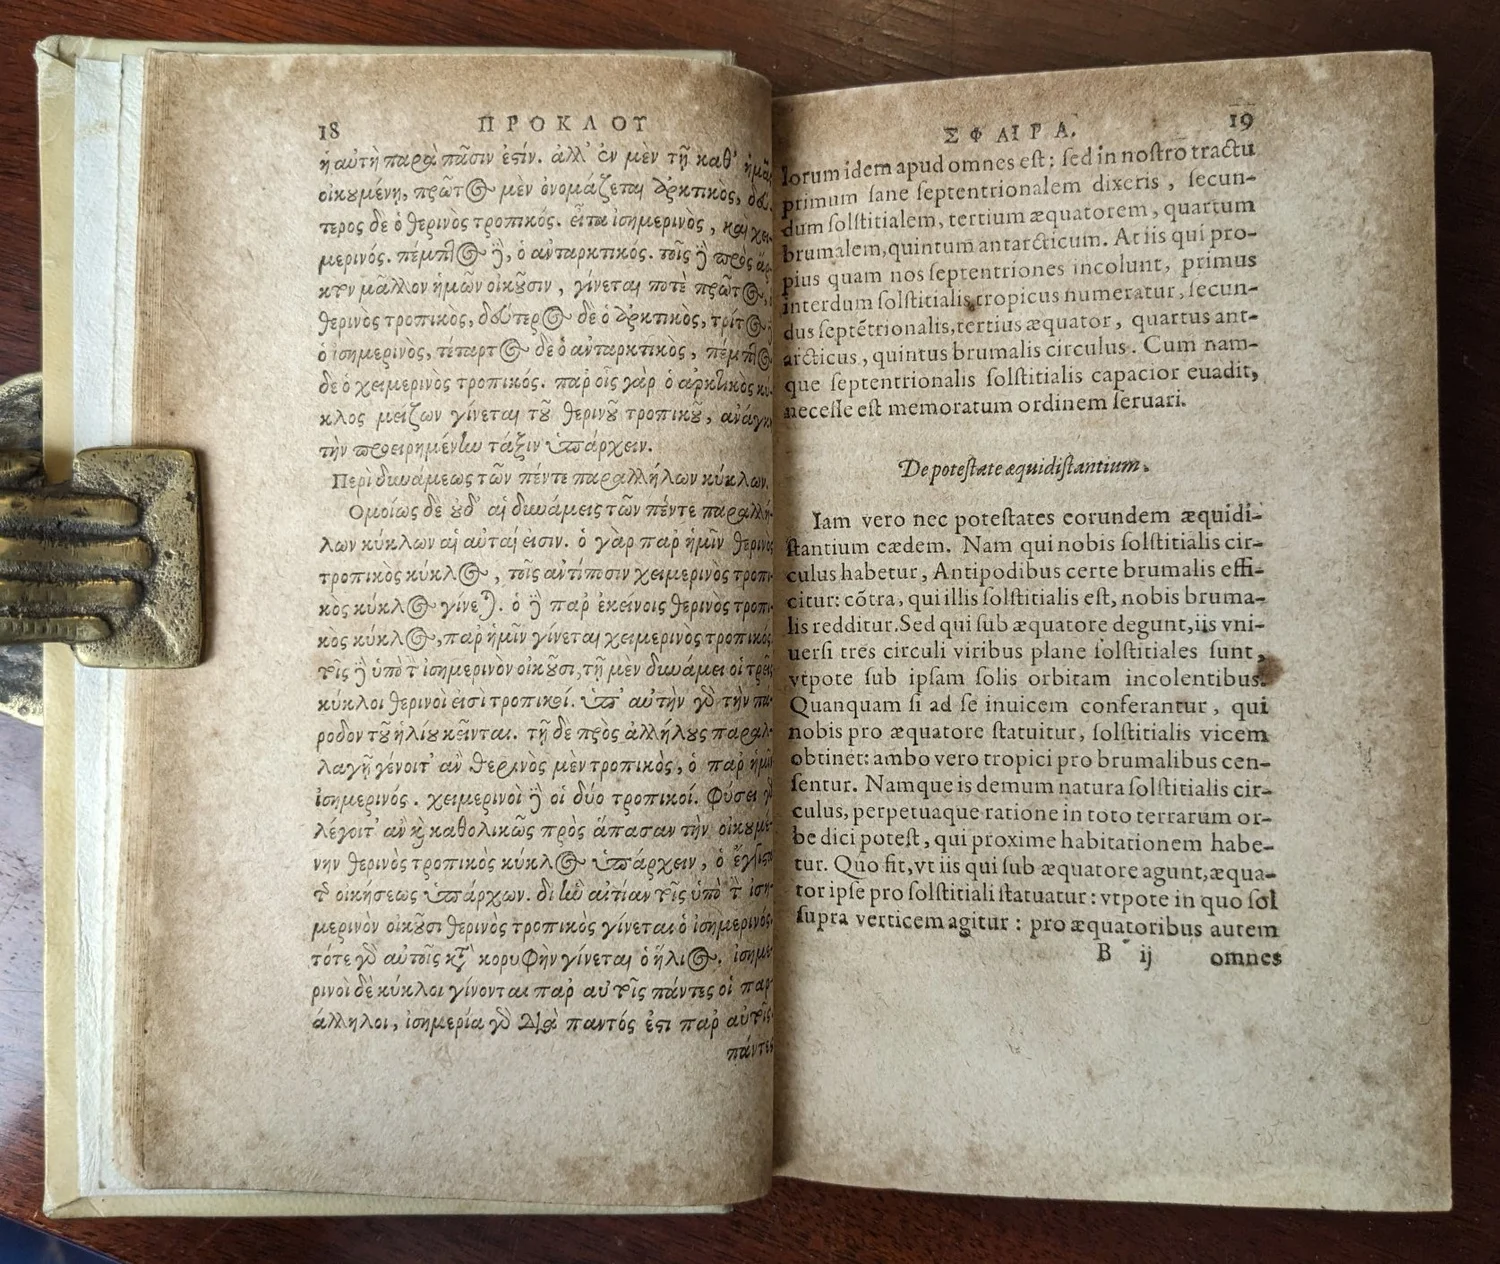 18 ΠΡΟΚΛΟΥ
ἡ αὐτὴ παρὰ πᾶσιν ἐςίν. ἀλλ' ἐν μὲν τῇ καθ' ἡμᾶς
οἰκουμένῃ, πρῶτος μὲν ὀνομάζεται ἀρκτικὸς, δεύ-
τερος δὲ ὁ θερινὸς τροπικός. εἶτα ἰσημερινὸς, καὶ χει-
μερινός. πέμπτος δὲ, ὁ ἀνταρκτικός. τοῖς δὲ πρὸς ἄρ-
κτον μᾶλλον ἡμῶν οἰκοῦσιν, γίνεται ποτὲ πρῶτος,
θερινὸς τροπικὸς, δεύτερος δὲ ὁ ἀρκτικὸς, τρίτος,
ὁ ἰσημερινὸς, τέταρτος δὲ ὁ ἀνταρκτικὸς, πέμπτος
δὲ ὁ χειμερινὸς τροπικός. παρ οἷς γὰρ ὁ ἀρκτικὸς κύ-
κλος μείζων γίνεται τοῦ θερινοῦ τροπικοῦ, ἀνάγκη
τὴν προειρημένην τάξιν ὑπάρχειν.
Περὶ δυνάμεως τῶν πέντε παραλλήλων κύκλων.
Ομοίως δὲ οὐδ' αἱ δυνάμεις τῶν πέντε παραλλή-
λων κύκλων αἱ αὐταί εἰσιν. ὁ γὰρ παρ ἡμῖν θερινὸς
τροπικὸς κύκλος, τοῖς ἀντίποσιν χειμερινὸς τροπι-
κὸς κύκλος γίνεται. ὁ δὲ παρ ἐκείνοις θερινὸς τροπι-
κὸς κύκλος, παρ ἡμῖν γίνεται χειμερινὸς τροπικός.
τοῖς δὲ ὑπὸ τὸν ἰσημερινὸν οἰκοῦσι, τῇ μὲν δυνάμει οἱ τρεῖς
κύκλοι θερινοὶ εἰσὶ τροπικοί. ὑπ' αὐτὴν γὰρ τὴν πά-
ροδον τοῦ ἡλίου κεῖνται. τῇ δὲ πρὸς ἀλλήλους παραλ-
λαγῇ γένοιτ' ἂν θερινὸς μὲν τροπικὸς, ὁ παρ ἡμῖν
ἰσημερινός. χειμερινοὶ δὲ οἱ δύο τροπικοί. Φύσει γὰρ
λέγοιτ' ἂν καὶ καθολικῶς πρὸς ἅπασαν τὴν οἰκουμέ-
νην θερινὸς τροπικὸς κύκλος ὑπάρχειν, ὁ ἔγγιστα
τῆς οἰκήσεως ὑπάρχων. δι ἣν αἰτίαν τοῖς ὑπὸ τὸν ἰση-
μερινὸν οἰκοῦσι θερινὸς τροπικὸς γίνεται ὁ ἰσημερινός.
τότε γὰρ αὐτοῖς κατὰ κορυφὴν γίνεται ὁ ἥλιος. ἰσημε-
ρινοὶ δὲ κύκλοι γίνονται παρ αὐτοῖς πάντες οἱ παρ-
άλληλοι, ἰσημερία γὰρ διὰ παντός ἐςι παρ αὐτοῖς.
πάντες
ΣΦΑΙΡΑ. 19
lorum idem apud omnes est: sed in nostro tractu
primum sane septentrionalem dixeris, secun-
dum solstitialem, tertium æquatorem, quartum
brumalem, quintum antarcticum. At iis qui pro-
pius quam nos septentriones incolunt, primus
interdum solstitialis tropicus numeratur, secun-
dus septẽtrionalis, tertius æquator, quartus ant-
arcticus, quintus brumalis circulus. Cum nam-
que septentrionalis solstitialis capacior euadit,
necesse est memoratum ordinem seruari.
De potestate æquidistantium.
Iam vero nec potestates eorundem æquidi-
stantium eædem. Nam qui nobis solstitialis cir-
culus habetur, Antipodibus certe brumalis effi-
citur: cõtra, qui illis solstitialis est, nobis bruma-
lis redditur. Sed qui sub æquatore degunt, iis vni-
uersi tres circuli viribus plane solstitiales sunt,
vtpote sub ipsam solis orbitam incolentibus.
Quanquam si ad se inuicem conferantur, qui
nobis pro æquatore statuitur, solstitialis vicem
obtinet: ambo vero tropici pro brumalibus cen-
sentur. Namque is demum natura solstitialis cir-
culus, perpetuaque ratione in toto terrarum or-
be dici potest, qui proxime habitationem habe-
tur. Quo fit, vt iis qui sub æquatore agunt, æqua-
tor ipse pro solstitiali statuatur: vtpote in quo sol
supra verticem agitur: pro æquatoribus autem
B ij omnes